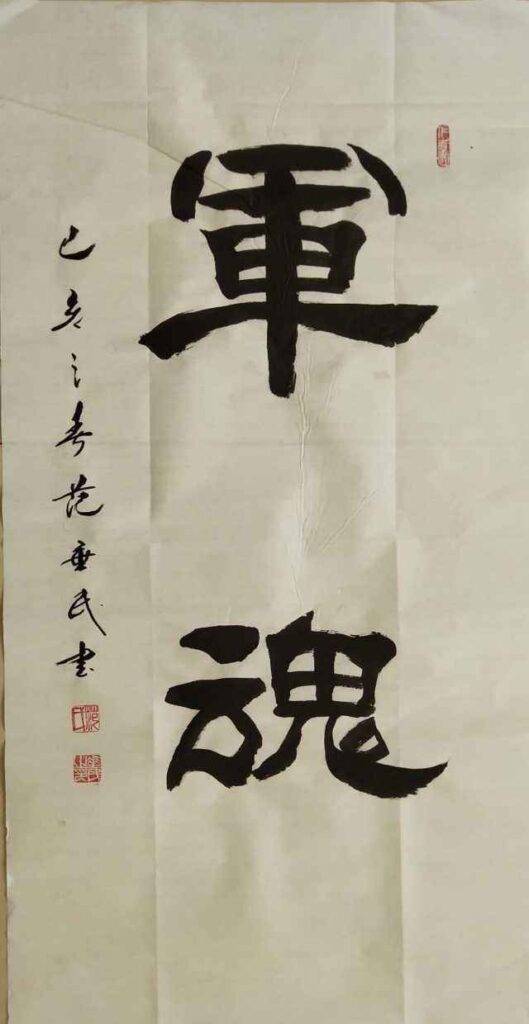 軍
魂
己亥之春范垂民書